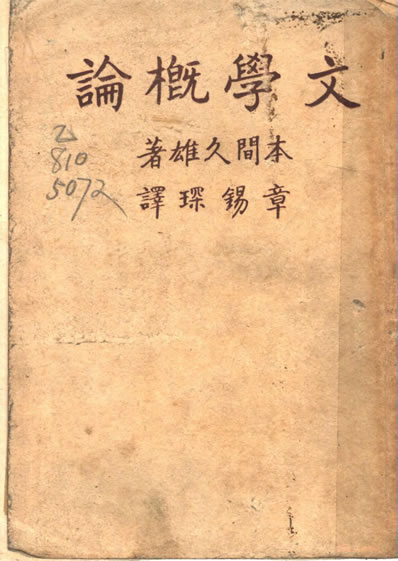 文學概論
本間久雄著
章錫琛譯
乙
810
5072